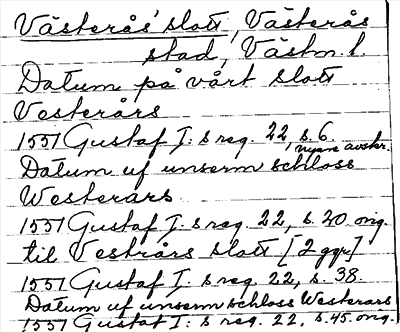 Västerås' slott, Västerås
stad, Västm. l.
Datum på vårt slott
Vesterårs
1551 Gustaf I: s reg. 22, s. 6.
nyare avskr.
Datum uf unserm schloss
Westerars
1551 Gustaf I: s reg. 22, s. 20 orig.
til Vestrårs slott [2 ggr]
1551 Gustaf I: s reg. 22, s. 38.
Datum uf unserm schloss Westerars
1551 Gustaf I: s reg. 22, s. 45. orig.